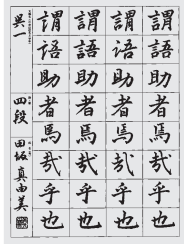 謂語助者焉哉乎也
謂語助者焉哉乎也
謂語助者焉哉乎也
謂語助者焉哉乎也
呉一
四段
田坂真由美